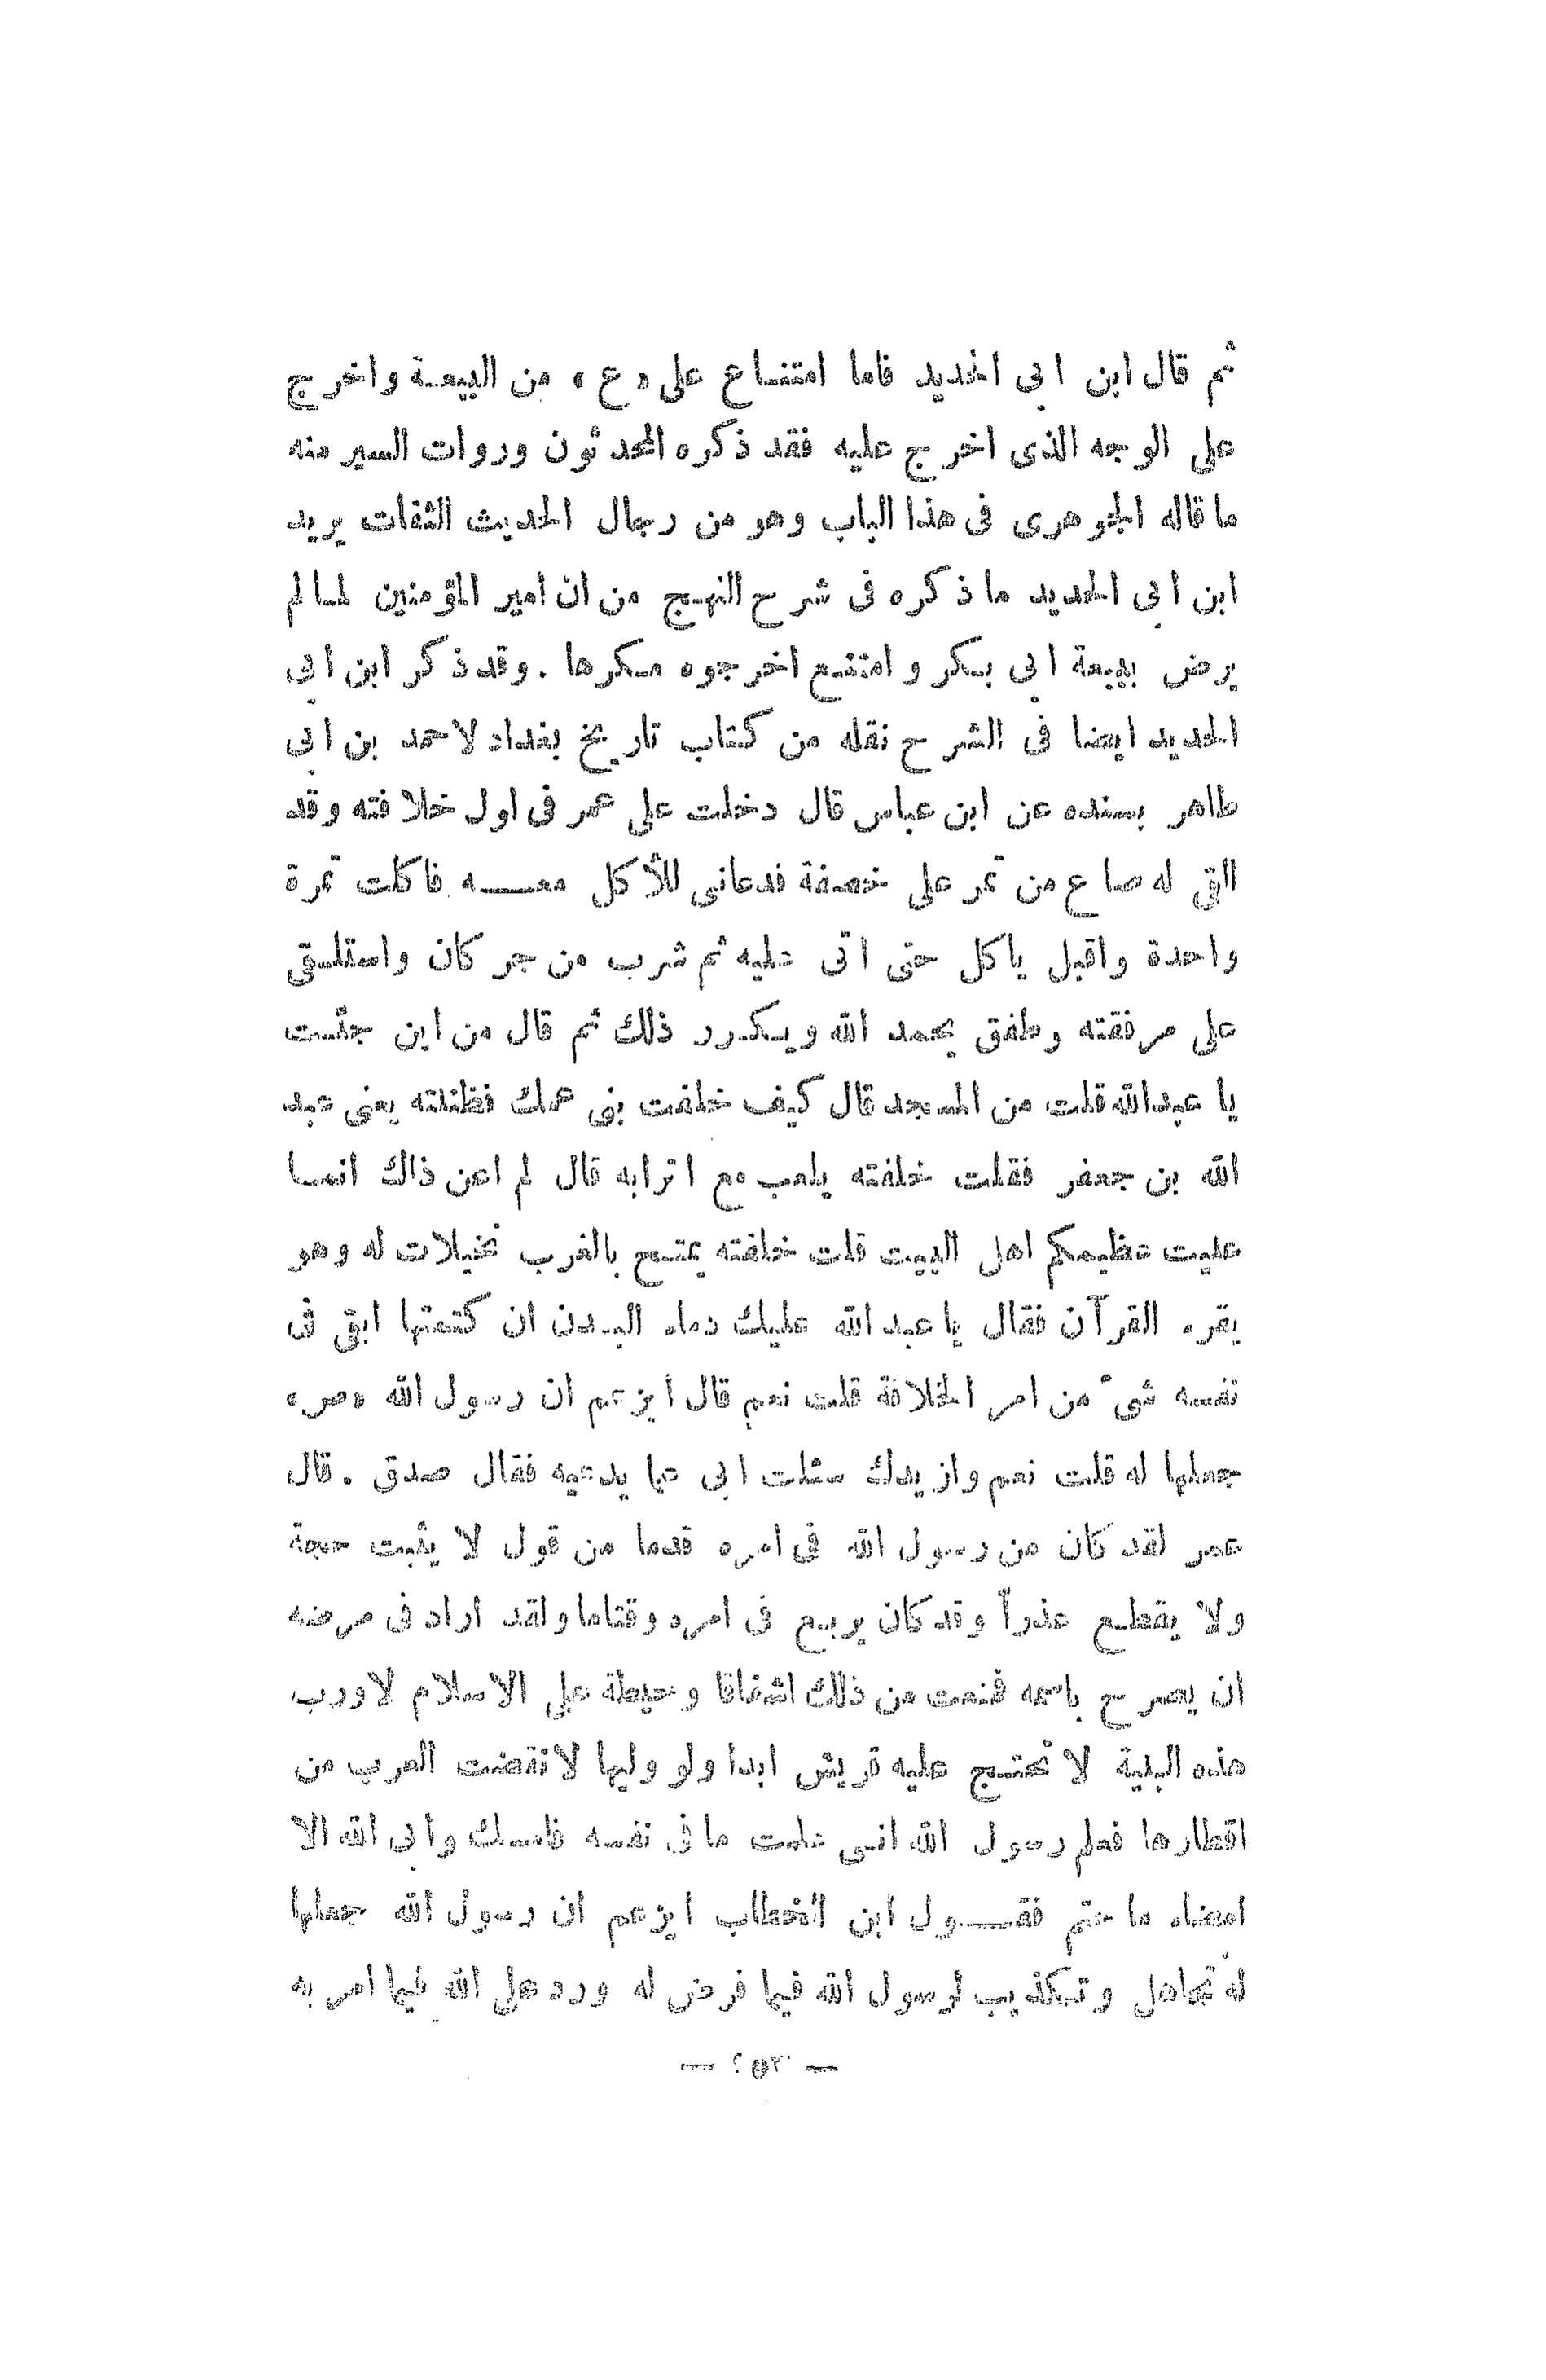 ثم قال ابن ابى الحديد فاما امتنـاع على «ع» من البيعـة واخرج
على الوجه الذى اخرج عليه فقد ذكره المحدثون وروات السير منه
ما قاله الجوهرى فى هذا الباب وهو من رجال الحديث الثقات يريد
ابن ابى الحديد ما ذكره فى شرح النهـج من ان امير المؤمنين لمـا لم
يرض ببيعة ابى بـكر وامتنـع اخرجوه مـكرها . وقد ذكر ابن ابى
الحديد ايضا فى الشرح نقله من كتاب تاريخ بغداد لاحمد بن ابى
طاهر بسنده عن ابن عباس قال دخلت على عمر فى اول خلافته وقد
القى له صاع من تمر على خصفة فدعانى للأكل معـــه فاكلت تمرة
واحدة واقبل ياكل حتى اتى عليه ثم شرب من جر كان واستلـقى
على مرفقته وطفق يحمد الله ويـكـرر ذلك ثم قال من اين جئـت
يا عبدالله قلت من المسجد قال كيف خلفت بنى عمك فظننته يعنى عبد
الله بن جعفر فقلت خلفته يلعب مع اترابه قال لم اعن ذاك انمـا
عنيت عظيمكم اهل البيت قلت خلفته يمتـح بالغرب نخيلات له وهو
يقرء القرآن فقال يا عبد الله عليك دماء البـدن ان كتمتها ابقى فى
نفسه شىء من امر الخلافة قلت نعم قال أيزعم ان رسول الله «ص»
جعلها له قلت نعم وازيدك سئلت ابى عما يدعيه فقال صدق . قال
عمر لقد كان من رسول الله فى امره قدما من قول لا يثبت حجة
ولا يقطـع عذراً وقد كان يربـع فى امره وقتاما ولقد اراد فى مرضه
ان يصرح باسمه فمنعت من ذلك اشفاقا وحيطة على الاسلام لا ورب
هذه البنية لا تحتـج عليه قريش ابدا ولو وليها لانتقضت العرب من
اقطارها فعلم رسول الله انـى علمت ما فى نفسه فامسك وابى الله الا
امضاء ما حتم فقـــول ابن الخطاب ايزعم ان رسول الله جعلها
له تجاهل وتـكذيب لرسول الله فيما فرض له ورد على الله فيما امر به